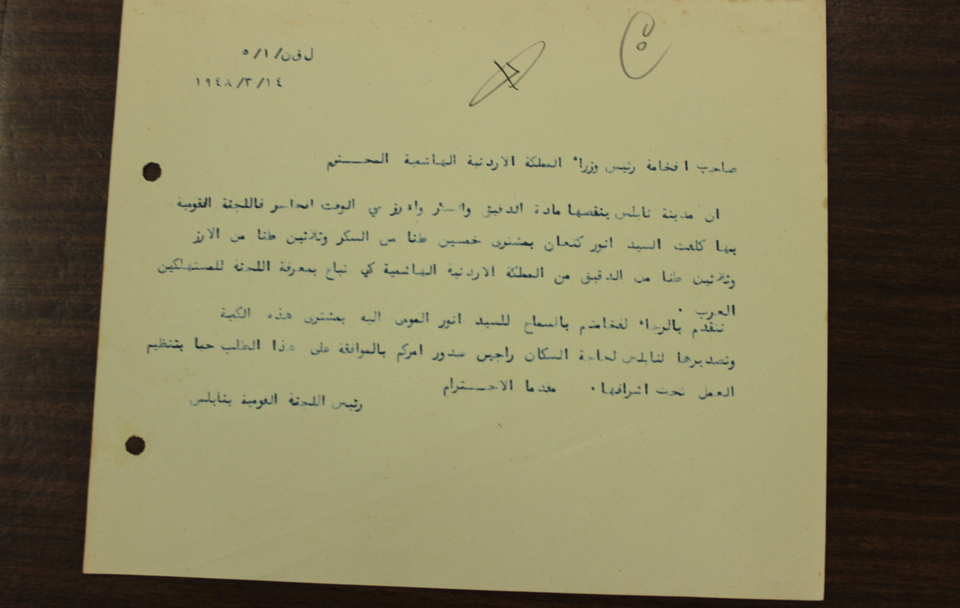 ل ق ن/١/٥
١٩٤٨/٣/١٤
صاحب افخامة رئيس وزراء المملكة الاردنية الهاشمية المحـــترم
ان مدينة نابلس ينقصها مادة الدقيق والسكر والارز في الوقت الحاضر فاللجنة القومية
بها كلفت السيد انور كنعان بمشترى خمسين طنا من السكر وثلاثين طنا من الارز
وثلاثين طنا من الدقيق من المملكة الاردنية الهاشمية كي تباع بمعرفة اللجنة للمستهلكين
العرب .
نتقدم بالرجاء لفخامتكم بالسماح للسيد انور المومى اليه بمشترى هذه الكمية
وتصديرها لنابلس لحاجة السكان راجين صدور امركم بالموافقة على هذا الطلب حبا بتنظيم
العمل تحت اشرافها . مقدما الاحـــترام
رئيس اللجنة القومية بنابلس